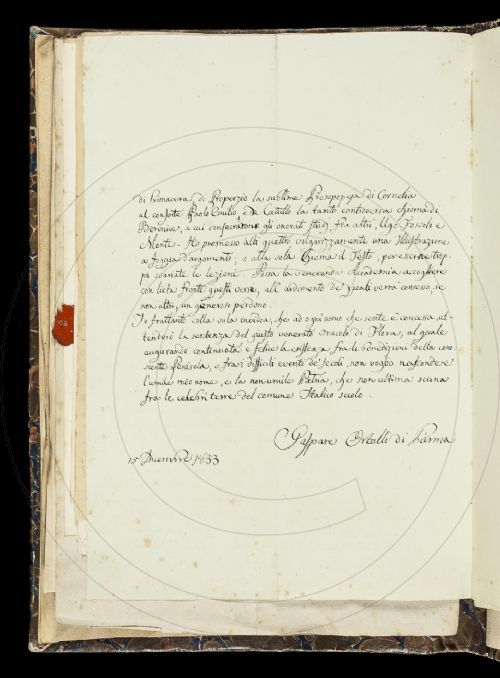 di Primavera, di Properzio la sublime Prosopopeja di Cornelia
al consorte Paolo Emilio, e da Catullo la tanto controversa Chioma di
Berenice, a cui consecrarono gli onorati studj, fra altri, Ugo Foscolo e
Monti. Ho premesso alli quattro volgarizzamenti una Illustrazione
a foggia d'argomenti, e alla sola Chioma il Testo, per esserne trop-
po svariate le lezioni. Possa la veneranda Accademia accogliere
con lieta fronte questi versi, all'ardimento de' quali verrà concesso, se
non altro, un generoso perdono.
Io frattanto colla sola medesima, che ad ogni uomo che scrive è concessa, at-
tenderò la sentenza del giusto venerato Oracolo di Flora, al quale
augurando continuata e felice la esistenza fra le benedizioni della cono-
scente Penisola, e fra i difficili eventi de' secoli, non voglio nascondere
l'umile mio nome, e la non umile Patria, che non ultima suona
fra le celebri terre del comune Italico suolo.
Gaspare Ortalli di Parma
15 Dicembre 1833